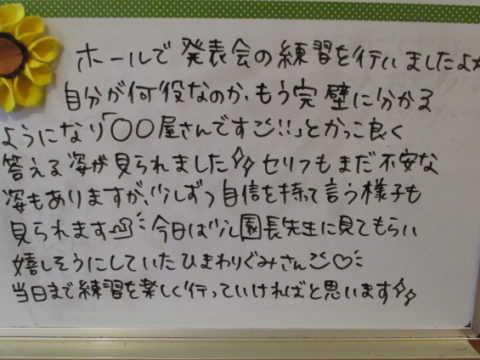 ホールで発表会の練習を行いましたよ
自分が何役なのか、もう完璧に分かる
ようになり「〇〇屋さんです!!」とかっこ良く
答える姿が見られました セリフもまだ不安な
姿もありますが、少しずつ自信を持って言う様子も
見られます 今日は少し園長先生に見てもらい
嬉しそうにしていたひまわりぐみさん♡
当日まで練習を楽しく行っていければと思います